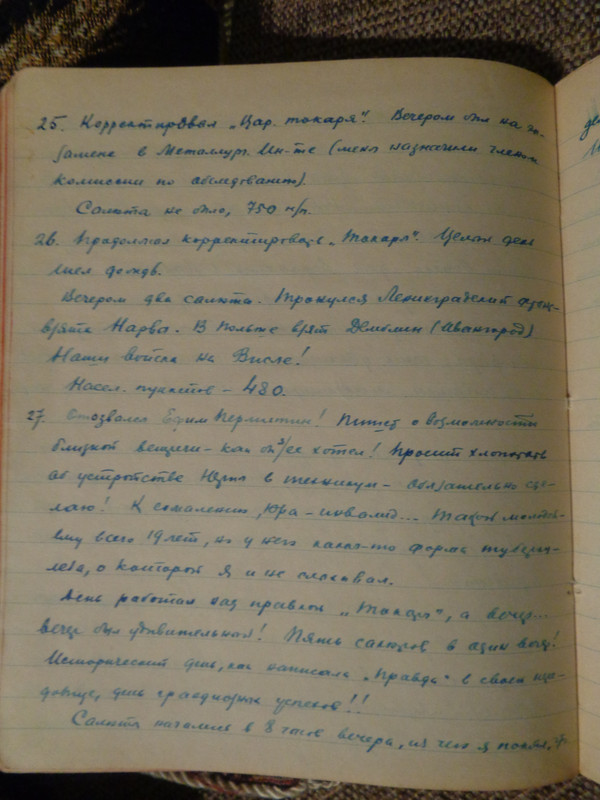 25. Корректировал „Цар. токаря". Вечером был на за-
седании в Металлург. Ин-те (меня назначили членом
комиссии по обследованию).
Салюта не было, 750 н/п.
26. Продолжал корректировать „Токаря". Целый день
шел дождь.
Вечером два салюта. Тронулся Ленинградский фронт-
взята Нарва. В Польше взят Демблин (Ивангород)
Наши войска на Висле!
Насел. пунктов – 480.
27. Отозвался Ефим Пермитин! Пишет о возможности
близкой встречи – как бы я ее хотел! Просит хлопотать
об устройстве Юры в техникум – обязательно сде-
лаю! К сожалению, Юра – инвалид... Такой молодой
ему всего 19 лет, но у него какая-то форма туберку-
леза, о которой я и не слыхивал.
День работал над правкой „Токаря", а вечер...
вечер был удивительный! Пять салютов в один вечер!
Исторический день, как написала „Правда" в своей пере-
довице, день грандиозных успехов!!
Салюты начались в 8 часов вечера, из чего я понял,